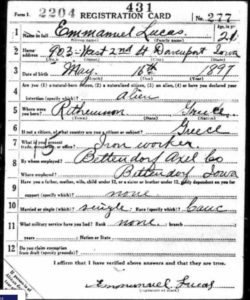 431
Form 1. 2204 REGISTRATION CARD No. 277
1 Name in full Emmanuel Lucas
2 Home address 903 West 2nd St Davenport Iowa
3 Date of birth May 18th 1897
4 Are you (1) a natural-born citizen, (2) a naturalized citizen, (3) an alien, (4) or have you declared your
intention (specify which)? Alien
5 Where were you born? Rethemnon Greece
6 If not a citizen, of what country are you a citizen or subject? Greece
7 What is your present trade, occupation, or office? Iron worker
8 By whom employed? Bettendorf Axel Co
Where employed? Bettendorf Iowa
9 Have you a father, mother, wife, child under 12, or a sister or brother under 12, solely dependent on you for
support (specify which)? none
10 Married or single (which)? single Race (specify which)? Cauc
11 What military service have you had? Rank none branch
years Nation or State
12 Do you claim exemption from draft (specify grounds)?
I affirm that I have verified above answers and that they are true.
Emmanuel Lucas